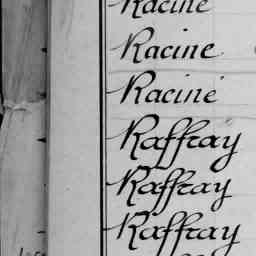 Racine
Racine
Raciné
Raffray
Raffray
Raffray